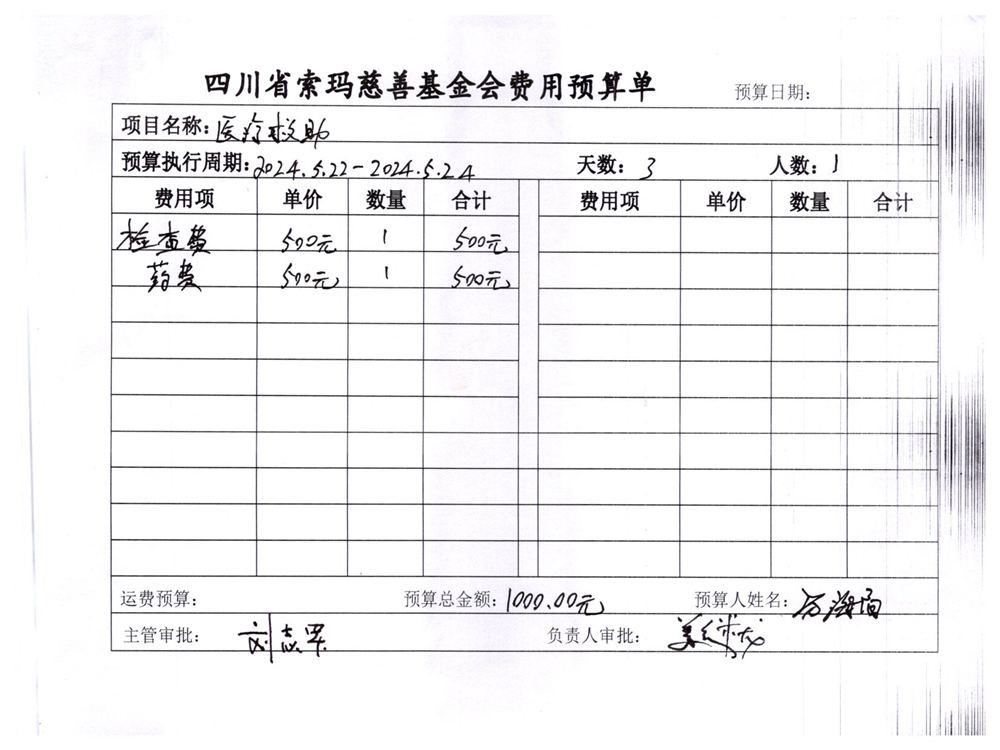 四川省索玛慈善基金会费用预算单
预算日期:
项目名称: 医疗救助
预算执行周期: 2024.5.22-2024.5.24 天数: 3 人数: 1
费用项 单价 数量 合计 费用项 单价 数量 合计
检查费 500元 1 500元
药费 500元 1 500元
运费预算: 预算总金额: 1000.00元 预算人姓名:
主管审批: 负责人审批: